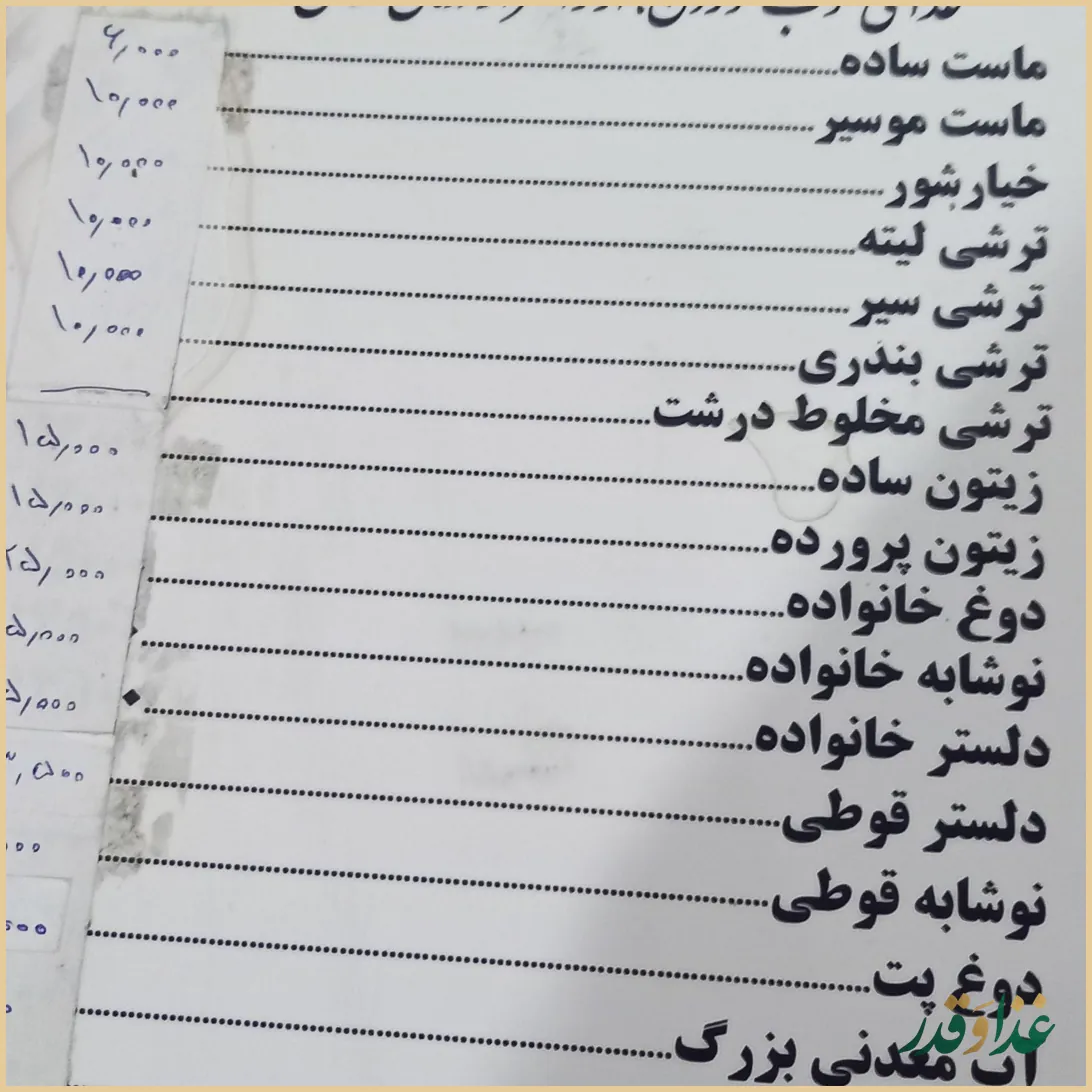 ماست ساده ۶,۰۰۰
ماست موسیر ۱۰,۰۰۰
خیارشور ۱۰,۰۰۰
ترشی لیته ۱۰,۰۰۰
ترشی سیر ۱۰,۰۰۰
ترشی بندری ۱۰,۰۰۰
ترشی مخلوط درشت
زیتون ساده ۱۵,۰۰۰
زیتون پرورده ۱۵,۰۰۰
دوغ خانواده
نوشابه خانواده
دلستر خانواده
دلستر قوطی
نوشابه قوطی
دوغ پت
آب معدنی بزرگ
غذا و قدر